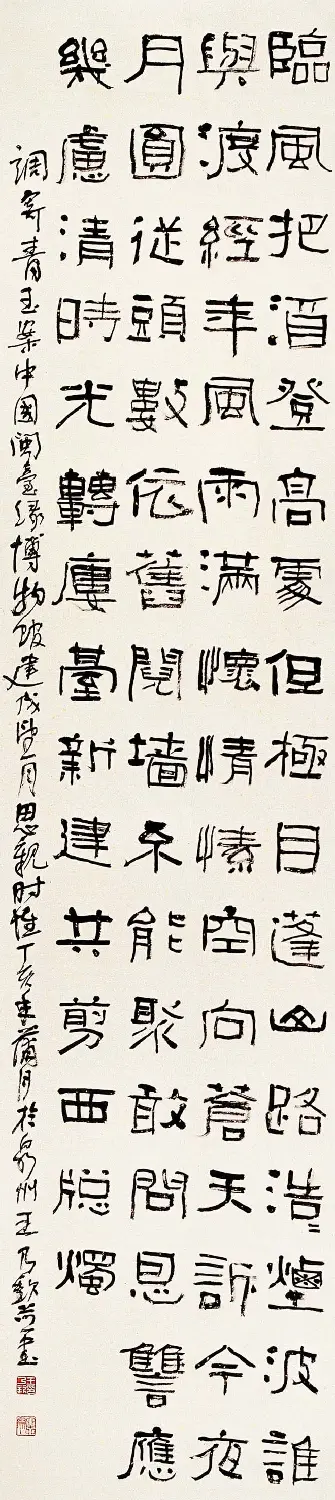 臨風把酒登高處但極目蓬山路浩浩煙波誰
與渡經年風雨滿懷情愫空向蒼天訴今夜
月圓從頭數依舊鬩墻不能聚敢問恩讐應
幾慮清時光轉樓臺新建共剪西牕燭
調寄青玉案中國閩臺緣博物館建成望月思親时惟丁亥年蒲月於泉州王乃欽并書